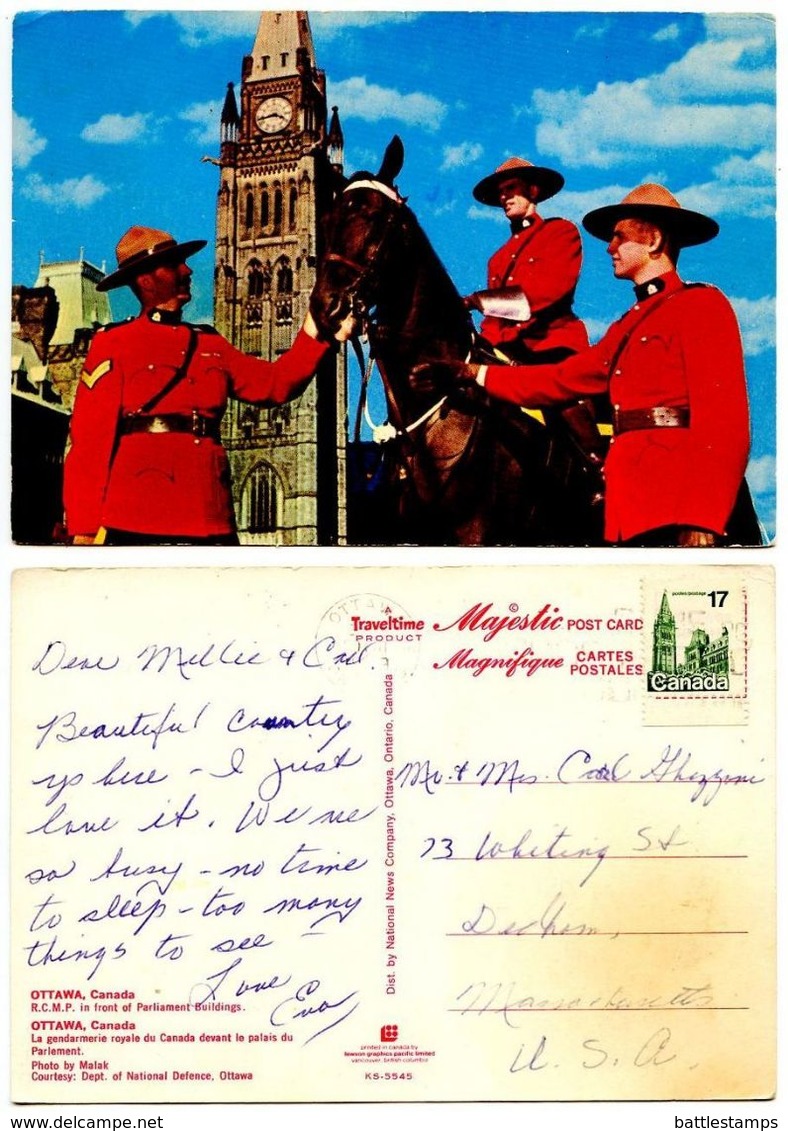 OTTAWA
A
Traveltime
PRODUCT
Majestic © POST CARD
Magnifique CARTES POSTALES
postes/postage 17
Canada
Dear Millie & Carl.
Beautiful Country
up here - I just
love it. We're
so busy - no time
to sleep - too many
things to see -
Love
Eva
Dist. by National News Company, Ottawa, Ontario, Canada
Mr. & Mrs. Carl Ghezzini
73 Whiting St
Dedham,
Massachusetts
U. S. A.
OTTAWA, Canada
R.C.M.P. in front of Parliament Buildings.
OTTAWA, Canada
La gendarmerie royale du Canada devant le palais du
Parlement.
Photo by Malak
Courtesy: Dept. of National Defence, Ottawa
printed in canada by
lawson graphics pacific limited
vancouver, british columbia
KS-5545
delcampe.net
battlestamps